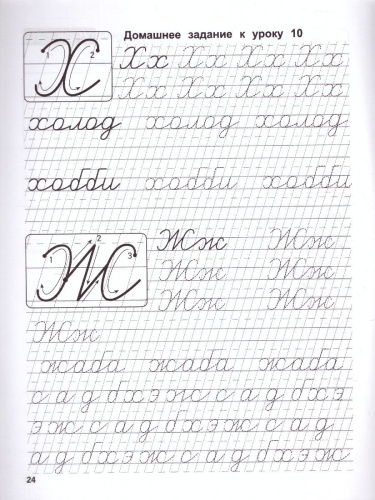 Домашнее задание к уроку 10
1 Х 2
Хх Хх Хх Хх
Хх Хх Хх Хх
холод холод холод
хобби хобби хобби
1 2 Ж 3
Жж Жж
Жж Жж
Жж Жж
Жж
жаба жаба жаба
с а д б х э ж с с а д б х э
э ж с с а д б х э ж с с а д
а д б х э ж с с а д б х э ж
24